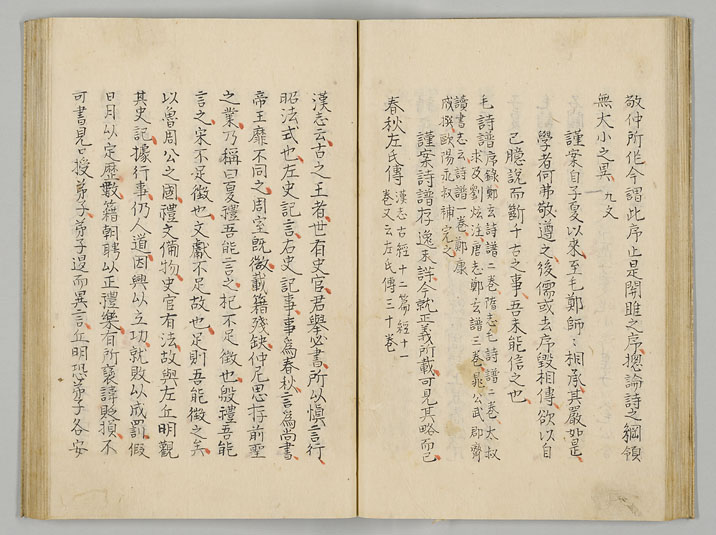 敬仲所作今謂此序止是關雎之序揔論詩之綱領
無大小之異 九文
謹案自子夏以來至毛鄭師〻相承其嚴如是
學者何弗敬遵之後儒或去序毀相傳欲以自
己臆說而斷千古之事吾未能信之也
毛詩譜序錄鄭玄詩譜二卷隋志毛詩譜二卷太叔
求及劉炫注唐志鄭玄譜三卷晁公武郡齋
讀書志云詩譜一卷鄭康
成撰歐陽永叔補完之
謹案詩譜存逸未詳今就正義所載可見其略而已
春秋左氏傳 漢志古經十二篇經十一
卷又云左氏傳三十卷
漢志云古之王者世有史官君舉必書所以愼言行
昭法式也左史記言右史記事事爲春秋言爲尚書
帝王靡不同之周室旣微載籍殘缺仲尼思存前聖
之業乃稱曰夏禮吾能言之杞不足徵也殷禮吾能
言之宋不足徵也文獻不足故也足則吾能徵之矣
以魯周公之國禮文備物史官有法故與左丘明觀
其史記據行事仍人道因興以立功就敗以成罰假
日月以定歷數籍朝聘以正禮樂有所襃諱貶損不
可書見口授弟子弟子退而異言丘明恐弟子各安